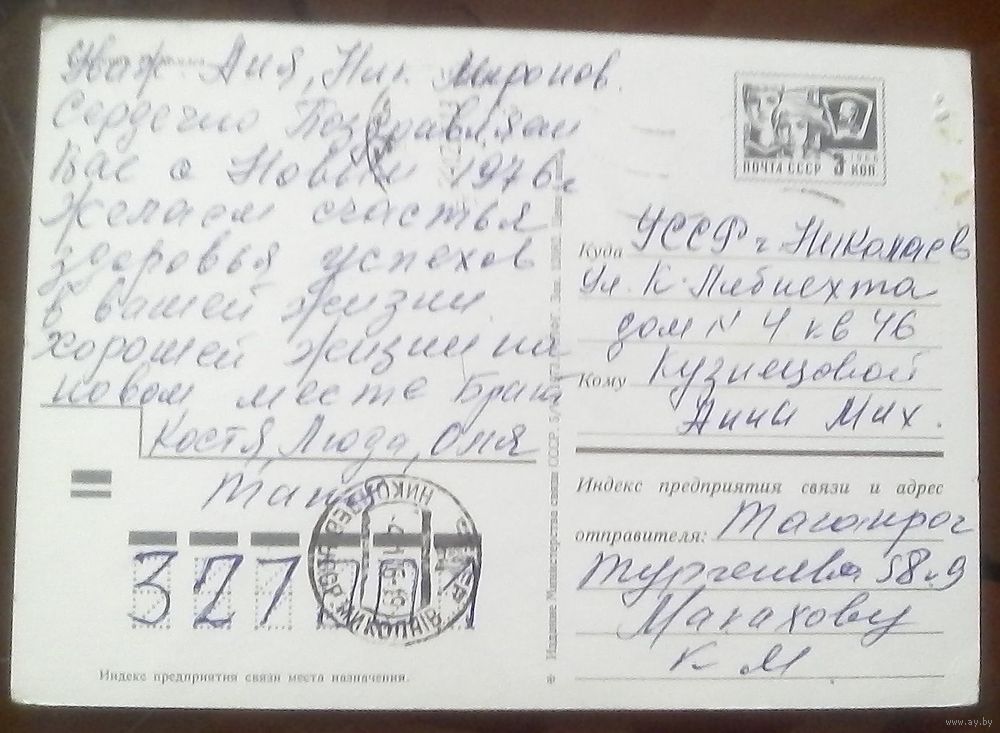 Уваж. Аня, Ник. Миронов.
Сердечно Поздравляем
Вас с Новым 1976 г
желаем счастья
здоровья успехов
в вашей жизни
хорошей жизни на
новом месте Брат
Костя, Люда, Оля
Таня
327
Индекс предприятия связи места назначения.
Издание Министерства связи СССР.
ПОЧТА СССР 3 КОП
1966
Куда УССР г Николаев
Ул. К. Либкнехта
дом N 4 кв 46
Кому Кузнецовой
Анны Мих.
Индекс предприятия связи и адрес
отправителя: Таганрог
Тургенева 58 к 9
Малахову
К М
НИКОЛАЕВ
www.ay.by